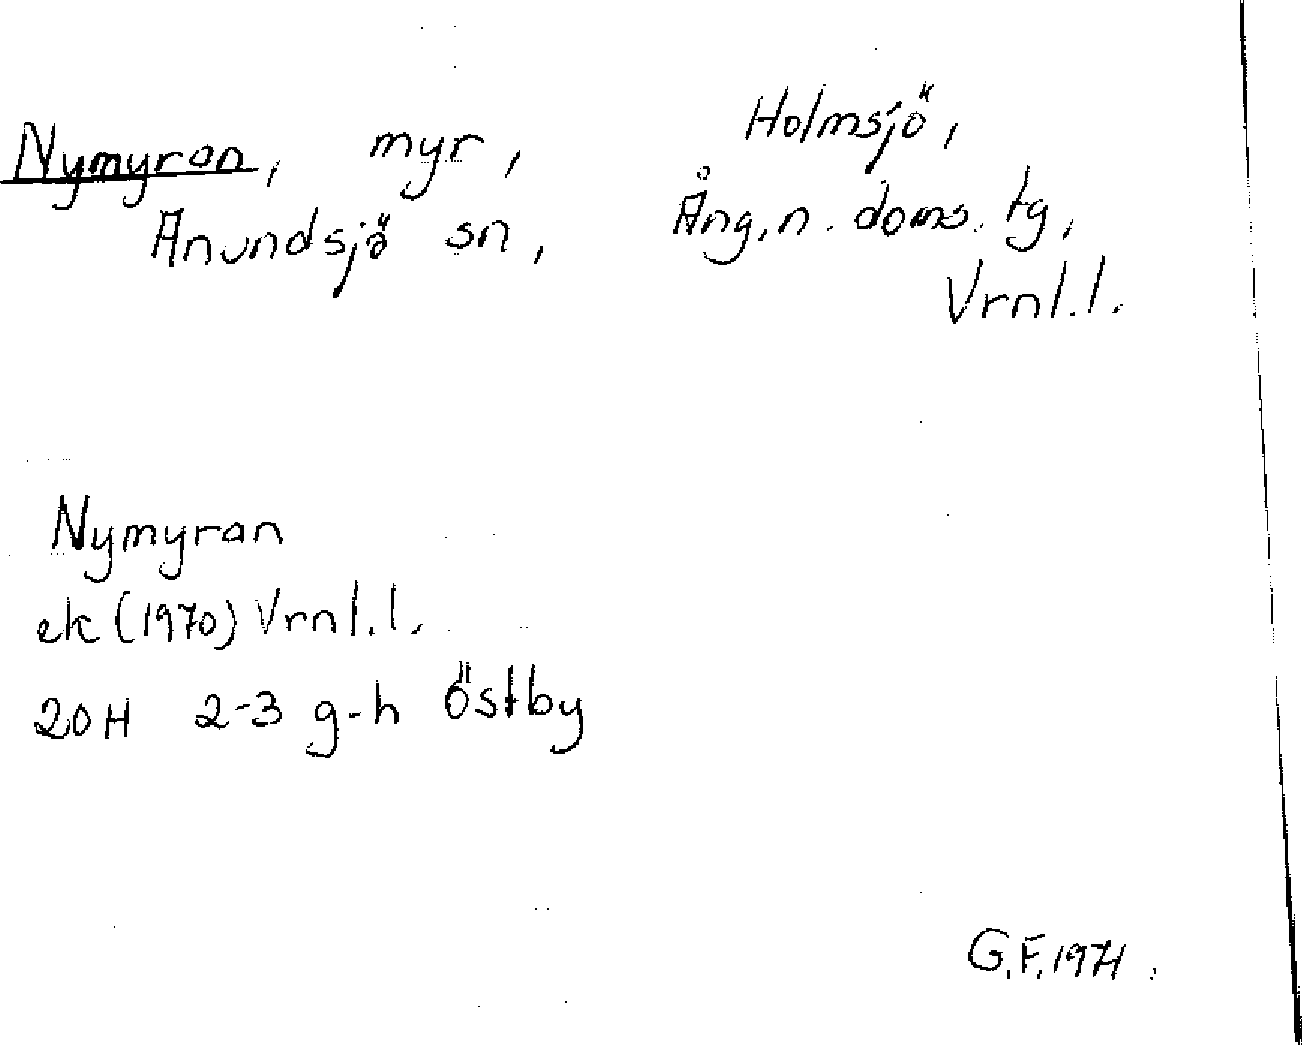 Nymyran, myr, Holmsjö,
Anundsjö sn, Ång.n. doms. tg,
Vrnl.l.
Nymyran
ek (1970) Vrnl.l.
20H 2-3 g-h Östby
G.F. 1971.